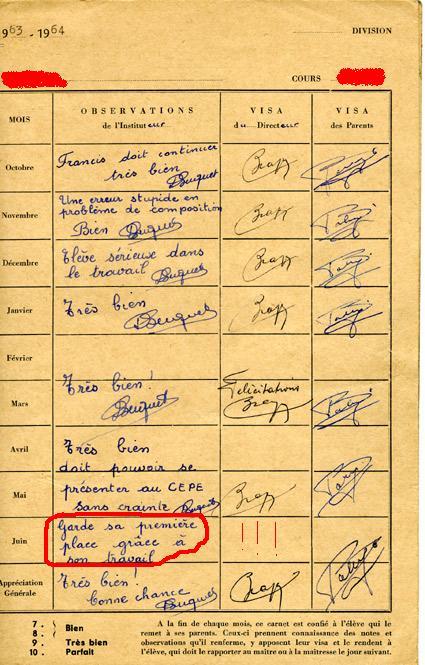 1963 - 1964
DIVISION
COURS
MOIS
OBSERVATIONS
de l'Instituteur
VISA
du Directeur
VISA
des Parents
Octobre
Francis doit continuer
très bien
Buquet
Novembre
Une erreur stupide en
problème de composition
Bien Buquet
Décembre
Elève sérieuse dans
le travail Buquet
Janvier
Très bien
Buquet
Février
Mars
Très bien!
Buquet
Félicitations
Avril
Très bien
doit pouvoir se
Mai
présenter au CEPE
sans crainte Buquet
Juin
Garde sa première
place grâce à
son travail
!!!
Appréciation
Générale
Très bien!
bonne chance Buquet
7. - } Bien
8. -
9. - Très bien
10. - Parfait
A la fin de chaque mois, ce carnet est confié à l'élève qui le
remet à ses parents. Ceux-ci prennent connaissance des notes et
observations qu'il renferme, y apposent leur visa et le rendent à
l'élève, qui doit le rapporter au maître ou à la maîtresse le jour suivant.